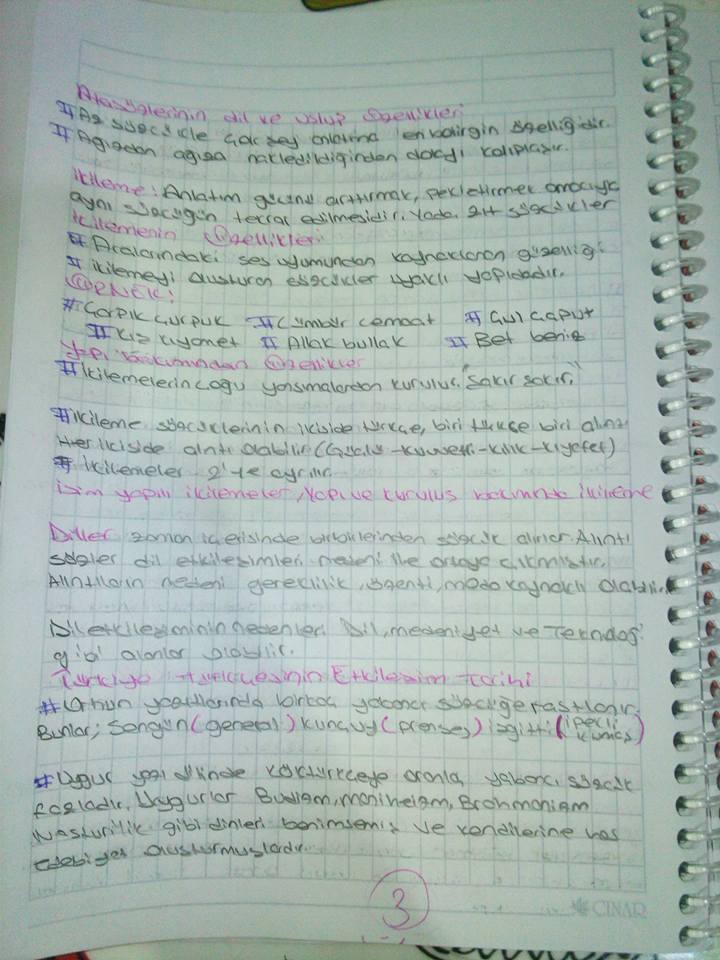 Atasözlerinin dil ve uslup Özellikleri
# Az sözcükle çok şey anlatma en belirgin özelliğidir.
# Ağızdan ağıza nakledildiğinden dolayı kalıplaşır.
İkileme: Anlatım gücünü arttırmak, pekiştirmek amacıyla
aynı sözcüğün tekrar edilmesidir. Yada zıt sözcükler
İkilemenin Özellikleri
# Aralarındaki ses uyumundan kaynaklanan güzelliği
# ikilemeyi oluşturan sözcükler uyaklı yapıdadır.
ÖRNEK:
# Çarpık Çurpuk # Cümbür cemaat # Çul çaput
# Kız kıyamet # Allak bullak # Bet beniz
Yapı bakımından Özellikler
# İkilemelerin çoğu yansımalardan kurulur. "Şakır şakır."
# ikileme sözcüklerinin ikiside türkçe, biri türkçe biri alıntı
Her ikiside alıntı olabilir (Güçlü-kuvvetli-kılık-kıyafet)
# İkilemeler 2'ye ayrılır.
isim yapılı ikilemeler, Yapı ve kuruluş bakımında ikileme
Diller zaman içerisinde birbirlerinden sözcük alırlar. Alıntı
sözler dil etkileşimleri nedeni ile ortaya çıkmıştır.
Alıntıların nedeni gereklilik, özenti, moda kaynaklı olabilir.
Dil etkileşiminin nedenleri Dil, medeniyet ve Teknoloji
gibi alanlar olabilir.
Türkiye türkçesinin Etkileşim tarihi
# Orhun yazıtlarında birkaç yabancı sözcüğe rastlanır.
Bunlar; Sengün (general) kunçuy (prenses) isgitti (ipekli kumaş)
# Uygur yazı dilinde köktürkçeye oranla yabancı sözcük
fazladır. Uygurlar Budizm, maniheizm, Brahmanizm
Nasturilik gibi dinleri benimsemiş ve kendilerine has
edebiyat oluşturmuşlardır.
3
ÇINAR